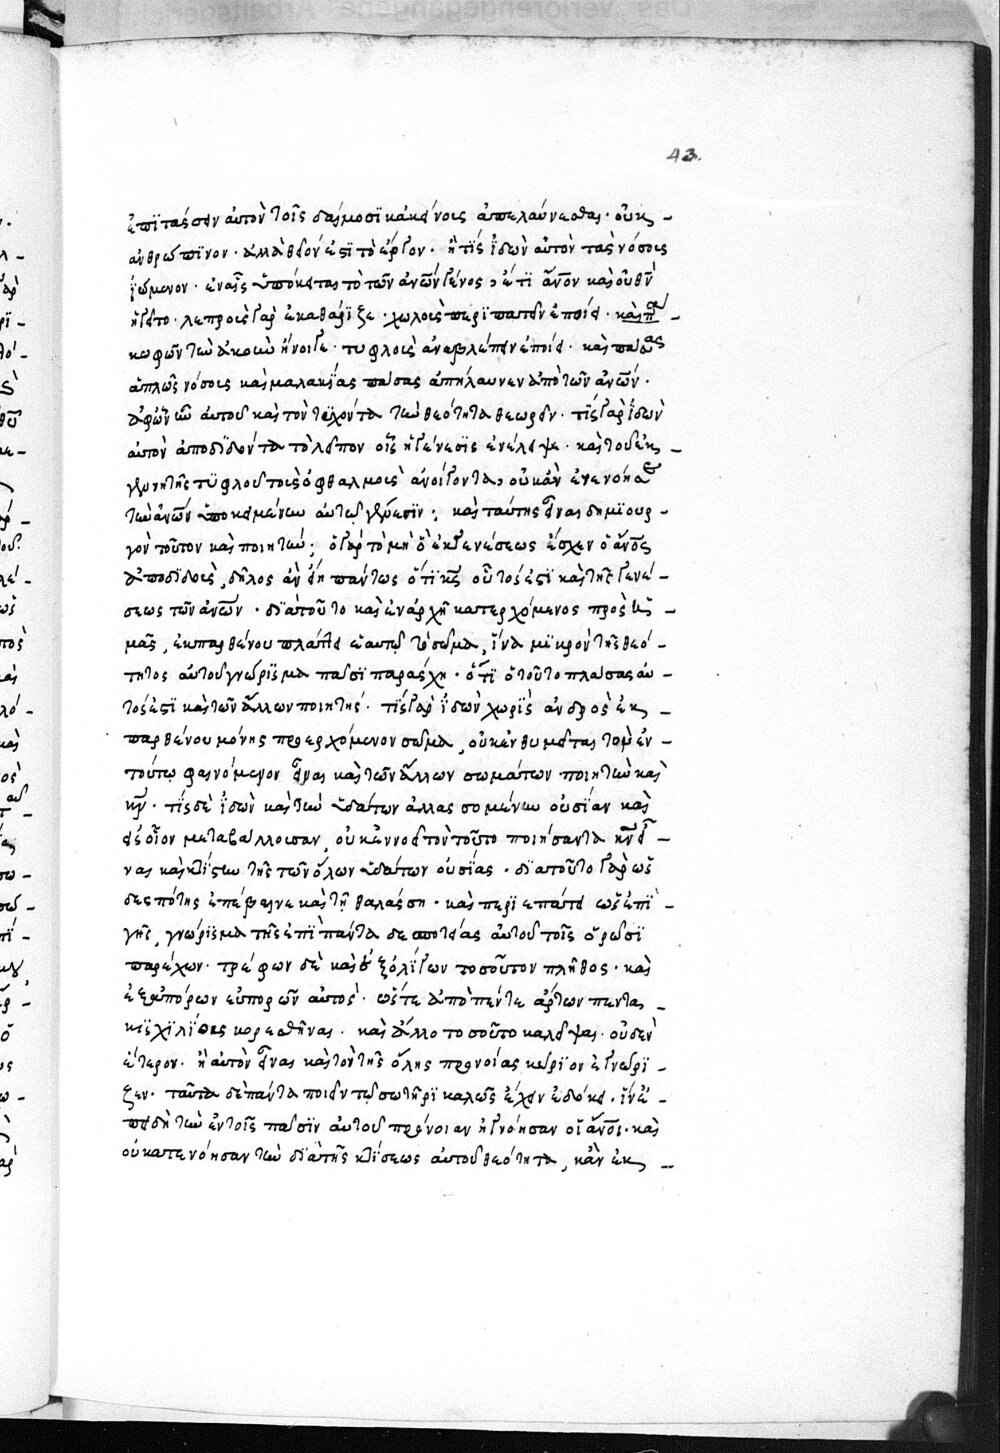 43.
ἐπϊτάσσειν αὐτὸν τοῖς δαίμοσϊ κἀκείνοις ἀπελαύνεσθαι· οὐκ
ἀνθρώπϊνον· ἀλλὰ θεοῦ ἐστϊ τὸ ἔργον· ἢ τίς ἰδὼν αὐτὸν τὰς νόσους
ἰώμενον· ἐν αἷς ὑπόκειται τὸ τῶν ἀνῶν γένος, ἔτι ἄνον καὶ οὐ θν̄
ἡγεῖτο· λεπροὺς γὰρ ἐκαθάρϊζε· χωλοὺς περϊπατεῖν ἐποίει·
κωφῶν τὴν ἀκοὴν ἤνοιγε· τυφλοὺς ἀναβλέπειν ἐποίει· καὶ πάσας
ἁπλῶς νόσους καὶ μαλακίας πάσας ἀπήλαυνεν ἀπὸ τῶν ἀνῶν·
ἀφ' ὧν ἦν αὐτοῦ καὶ τὸν τυχόντα τὴν θεότητα θεωρεῖν· τίς γὰρ ἰδὼν
αὐτὸν ἀποδϊδόντα τὸ λεῖπον οἷς ἡ γένεσϊς ἐνέλειψε· καὶ τοῦ ἐκ
γενετῆς τυφλοῦ τοὺς ὀφθαλμοὺς ἀνοίγοντα, οὐκ ἂν ἐνενόησε
τὴν ἀνῶν ὑποκειμένην αὐτῷ γένεσϊν; καὶ ταύτης εἶναι δημϊουρ
γὸν τοῦτον καὶ ποιητήν; ὁ γὰρ τὸ μὴ ὃ ἐκ γενέσεως ἔσχεν ὁ ἄνος
ἀποδϊδοὺς, δῆλος ἂν εἴη πάντως ὅτι κς οὗτός ἐστϊ καὶ τῆς γενέ
σεως τῶν ἀνῶν· διὰ τοῦτο καὶ ἐν ἀρχῇ κατερχόμενος πρὸς ἡ
μᾶς, ἐκ παρθένου πλάττει ἑαυτῷ τὸ σῶμα, ἵνα μὴ μικρὸν τῆς θεό
τητος αὐτοῦ γνώρϊσμα πᾶσϊ παράσχῃ· ὅτϊ ὁ τοῦτο πλάσας αὐ
τός ἐστϊ καὶ τῶν ἄλλων ποιητής· τίς γὰρ ἰδὼν χωρὶς ἀνδρὸς ἐκ
παρθένου μόνης προερχόμενον σῶμα, οὐκ ἐνθυμεῖται τὸν ἐν
τούτῳ φαινόμενον εἶναι καὶ τῶν ἄλλων σωμάτων ποιητὴν καὶ
κν̄· τίς δὲ ἰδὼν καὶ τὴν ὑδάτων ἀλλασσομένην οὐσίαν καὶ
εἰς οἶνον μεταβάλλουσαν, οὐκ ἐννοεῖ τὸν τοῦτο ποιήσαντα κν̄ εἶ
ναι καὶ κτίστην τῆς τῶν ὅλων ὑδάτων οὐσίας· διὰ τοῦτο γὰρ ὡς
δεσπότης ἐπέβαινε καὶ τῇ θαλάσσῃ· καὶ περιεπάτει ὡς ἐπὶ
γῆς, γνώρϊσμα τῆς ἐπὶ πάντα δεσποτείας αὐτοῦ τοῖς ὁρῶσϊ
παρέχων· τρέφων δὲ καὶ ἐξ ὀλίγων τοσοῦτον πλῆθος· καὶ
ἐξ ἀπόρων εὐπορῶν αὐτός· ὥστε ἀπὸ πέντε ἄρτων πεντα
κϊσχϊλίους κορεσθῆναι· καὶ ἄλλο τοσοῦτο καλεῖψαι· οὐδὲν
ἕτερον· ἢ αὐτὸν εἶναι καὶ τὸν τῆς ὅλης προνοίας κύριον ἐγνώρϊ
ζεν· ταῦτα δὲ πάντα ποιεῖν τῷ σωτῆρϊ καλῶς ἔχειν ἐδόκει· ἵν' ἐ
πειδὴ τὴν ἐν τοῖς πᾶσϊν αὐτοῦ πρόνοιαν ἠγνόησαν οἱ ἄνοι· καὶ
οὐ κατενόησαν τὴν διὰ τῆς κτίσεως αὐτοῦ θεότητα, κἂν ἐκ